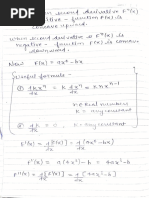 when second derivative f''(x)
is positive - function f(x) is
concave upward.
when second derivative f''(x) is
negative - function f(x) is concave
downward.
Now f(x) = ax⁴ - bx
Useful formula -
① d kxⁿ/dx = k dxⁿ/dx = k n xⁿ⁻¹
n = real number
k = any constant
② dk/dx = 0, k = any constant
f'(x) = d/dx [f(x)] = d/dx [ax⁴ - bx]
f'(x) = a(4x³) - b = 4ax³ - b
f''(x) = d/dx [f'(x)] = d/dx [4ax³ - b]